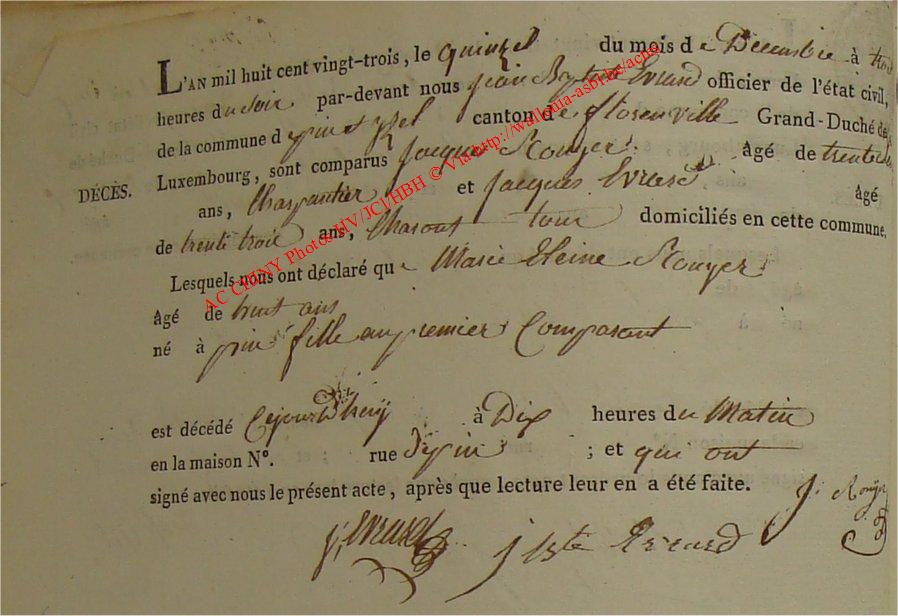 L'AN mil huit cent vingt-trois, le quinze du mois de Decembre à
heures du soir par-devant nous Jean Baptiste Evrard officier de l'état civil,
de la commune d pin et yzel canton de florenville Grand-Duché de
Luxembourg, sont comparus Jacques Rouyer âgé de
DÉCÈS.
ans, Charpantier et Jacques Evrard âgé
de trente trois ans, domiciliés en cette commune.
Lesquels nous ont déclaré que Marie Rouyer
âgé de ans
né à pin fille au premier Comparant
est décédé Cejourdhuy à Dix heures du Matin
en la maison N°. rue dypin ; et qui ont
signé avec nous le présent acte, après que lecture leur en a été faite.
J. Rouyer
J. Evrard
J Bte Evrard
AC CHINY Photos HV/JCl/HBH © Via http://wallonia-asbl.be/achg